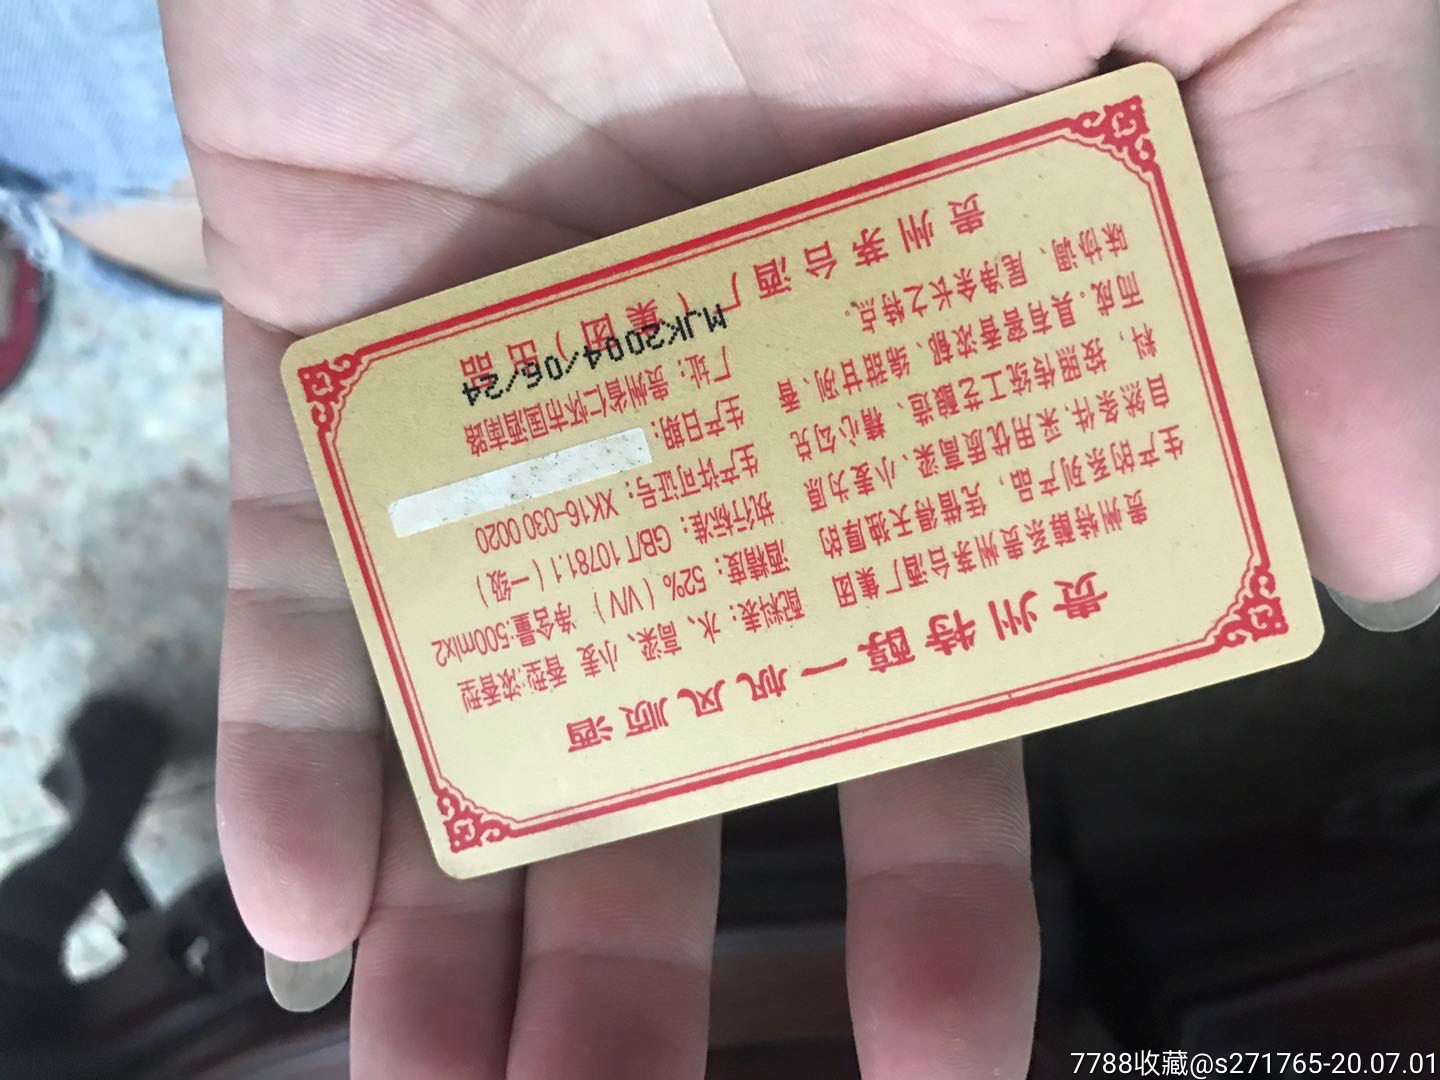 贵州特醇一帆风顺酒
贵州特醇系贵州茅台酒厂集团
生产的系列产品，凭借得天独厚的
自然条件，采用优质高粱、小麦为原
料，按照传统工艺酿造、精心勾兑
而成，具有窖香浓郁、绵甜甘冽、香
味协调、尾净余长之特点。
配料表：水、高粱、小麦 香型:浓香型
酒精度：52%（V/V） 净含量:500mlx2
执行标准：GB/T10781.1（一级）
生产许可证号：XK16-030 0020
生产日期：
厂址：贵州省仁怀市国酒南路
MJK2004/06/24
贵州茅台酒厂（集团）出品
7788收藏@s271765-20.07.01